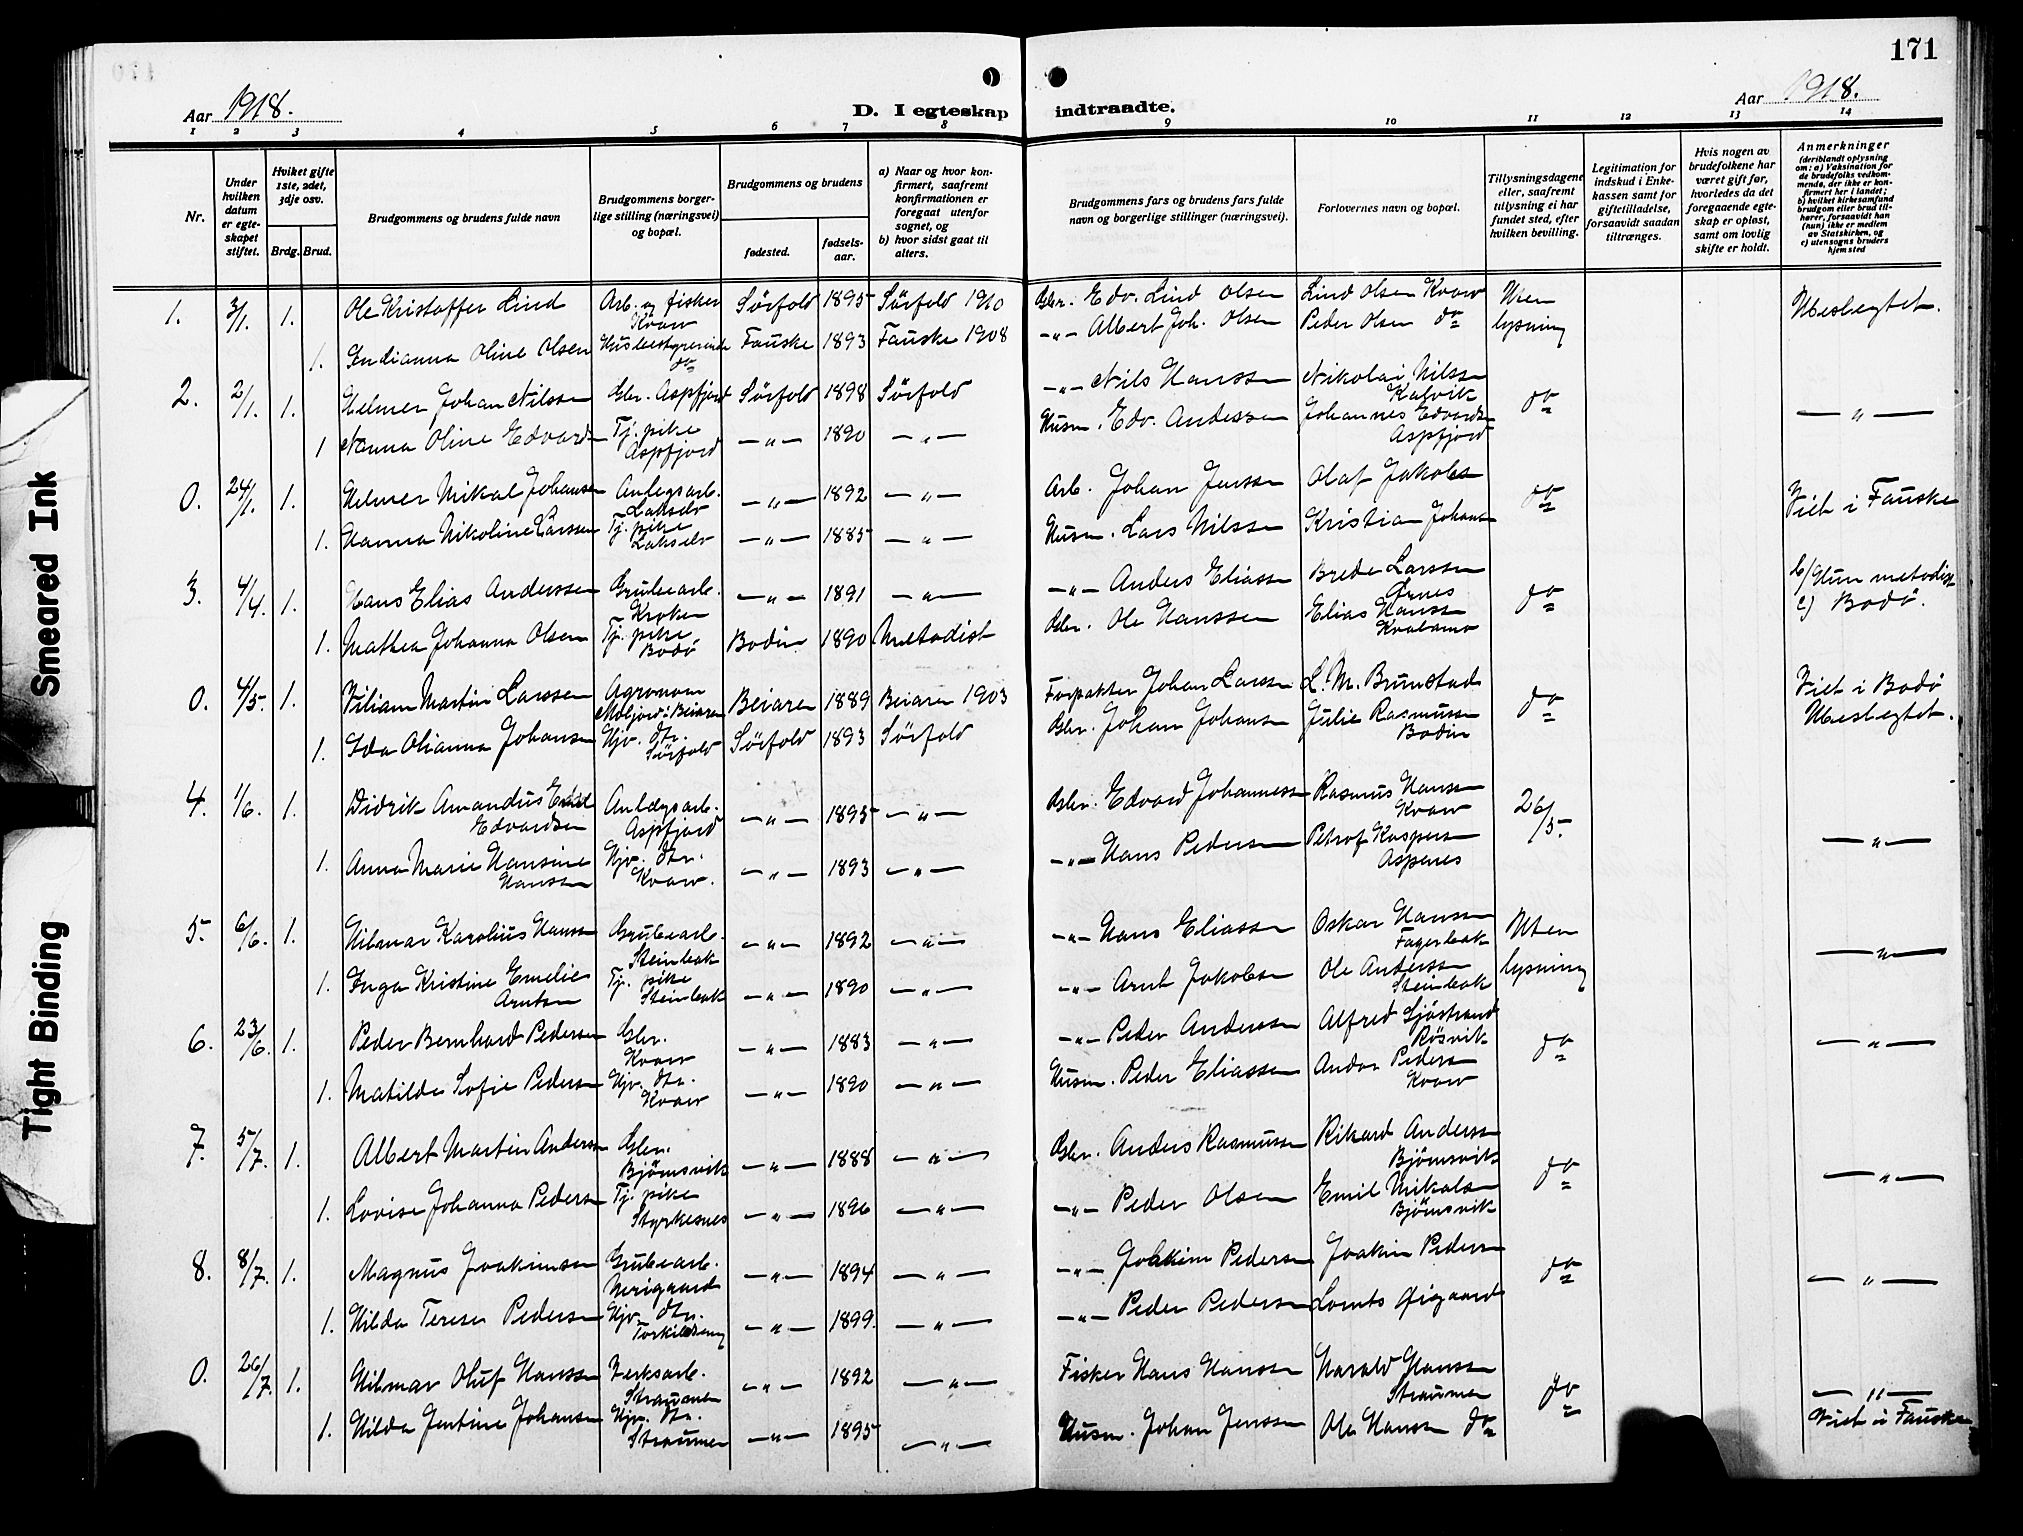 171
Aar 1918.
D. I egteskap indtraadte.
Aar 1918.
1 2 3 4 5 6 7 8 9 10 11 12 13 14
Nr.
Under hvilken datum er egteskapet stiftet.
Hviket gifte 1ste, 2det, 3dje osv.
Brdg. Brud.
Brudgommens og brudens fulde navn
Brudgommens borgerlige stilling (næringsvei) og bopæl.
Brudgommens og brudens
fødested.
fødselsaar.
a) Naar og hvor konfirmert, saafremt konfirmationen er foregaat utenfor sognet, og
b) hvor sidst gaat til alters.
Brudgommens fars og brudens fars fulde navn og borgerlige stillinger (næringsvei).
Forlovernes navn og bopæl.
Tillysningsdagene eller, saafremt tillysning ei har fundet sted, efter hvilken bevilling.
Legitimation for indskud i Enkekassen samt for giftetilladelse, forsaavidt saadan tiltrænges.
Hvis nogen av brudefolkene har været gift før, hvorledes da det foregaaende egteskap er opløst, samt om lovlig skifte er holdt.
Anmerkninger
(deriblandt oplysning om: a) Vaksination for de brudefolks vedkommende, der ikke er konfirmert her i landet; b) hvilket kirkesamfund brudgom eller brud tilhører, forsaavidt han (hun) ikke er medlem av Statskirken, og c) utensogns bruders hjemsted
1. 3/1. 1. Ole Kristoffer Lind Arb. og fisker Kvarv Sörfold 1895 Sörfold 1910 Gbr. Edv. Lind Olsen Lind Olsen Kvarv Uten lysning Ubeslegtet.
1. Indianna Oline Olsen Husbestyrerinde do Fauske 1893 Fauske 1908 -"- Albert Joh. Olsen Peder Olsen do
2. 2/1. 1. Helmer Johan Nilssen Gbr. Aspfjord Sörfold 1898 Sörfold -"- Nils Hanssen Nikolai Nilssen Kalvik do -"-
1 Nanna Oline Edvards Tj. pike Aspfjord -"- 1890 -"- Husm. Edv. Anderssen Johannes Edvardsen Aspfjord
0. 24/1. 1. Helmer Mikal Johansen Anlegsarb. Lakselv -"- 1892 -"- Arb. Johan Jenssen Olaf Jakobsen do Viet i Fauske
1. Hanna Nikoline Larssen Tj. pike Lakselv -"- 1885 -"- Husm. Lars Nilssen Kristian Johansen
3. 4/4. 1. Hans Elias Anderssen Grubearb. Kroken -"- 1891 -"- -"- Anders Eliassen Brede Larssen Ørnes do b/ Hun metodist
1. Mathea Johanna Olsen Tj. pike Bodö Bodin 1890 Metodist Gbr. Ole Hanssen Elias Hanssen c) Bodö.
0. 4/5. 1. Viliam Martin Larssen Agronom Moljord i Beiaren Beiaren 1889 Beiaren 1903 Forpakter Johan Larssen L. M. Brunstad do Viet i Bodö
1. Ida Olianna Johansen Gjv. dtr. Sörfold Sörfold 1893 Sörfold Gbr. Johan Johansen Julie Rasmussen Bodin Ubeslegtet.
4. 1/6. 1. Didrik Amandus Edvardsen Anlægsarb. Aspfjord -"- 1895 -"- Gbr. Edvard Johannessen Rasmus Hanssen Kvarv 26/5. -"-
1. Anna Marie Hansine Hanssen Gjv. dtr. Kvarv. -"- 1893 -"- -"- Hans Pedersen Petrof Kaspersen Aspenes
5. 6/6. 1. Hilmar Karolius Hanssen Grubearb. Steinbak -"- 1892 -"- -"- Hans Eliassen Oskar Hanssen Fagerbak Uten lysning -"-
1. Inga Kristine Emelie Arntsen Tj. pike Steinbak -"- 1890 -"- -"- Arnt Jakobsen Ole Anderssen Steinbak
6. 23/6. 1. Peder Bernhard Pedersen Gbr. Kvarv -"- 1883 -"- -"- Peder Anderssen Alfred Sjöstrand Røsvik do -"-
1. Matilde Sofie Pedersen Gjv. dtr. Kvarv -"- 1890 -"- Husm. Peder Eliassen Andor Pedersen Kvarv
7. 5/7. 1. Albert Martin Anderssen Gbr. Bjørnsvik -"- 1888 -"- Gbr. Anders Rasmussen Rikard Anderssen Bjørnsvik do -"-
1. Lovise Johanna Pedersen Tj. pike Styrkesnes -"- 1896 -"- -"- Peder Olsen Emil Mikalsen Bjørnsvik
8. 8/7. 1. Magnus Joakimsen Grubearb. -"- 1894 -"- -"- Joakim Pedersen Joakim Pedersen do -"-
1. Hilda Terese Pedersen Gjv. dtr. Torkildseng -"- 1899. -"- -"- Peder Pedersen Lorents Øigaard
0. 26/7. 1. Hilmar Oluf Hanssen Verksarb. Straumen -"- 1892 -"- Fisker Hans Hanssen Harald Hanssen Straumen do -"-
1. Hilda Jentine Johansen Gjv. dtr. Straumen -"- 1895 -"- Husm. Johan Jenssen Ole Hanssen do Viet i Fauske
Smeared Ink
Tight Binding